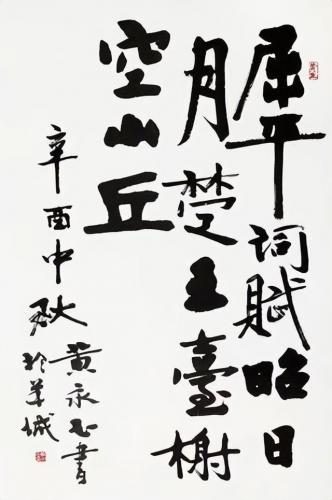 屈平词赋昭日
月楚王臺榭
空山丘
辛酉中秋
黄永玉書
於羊城